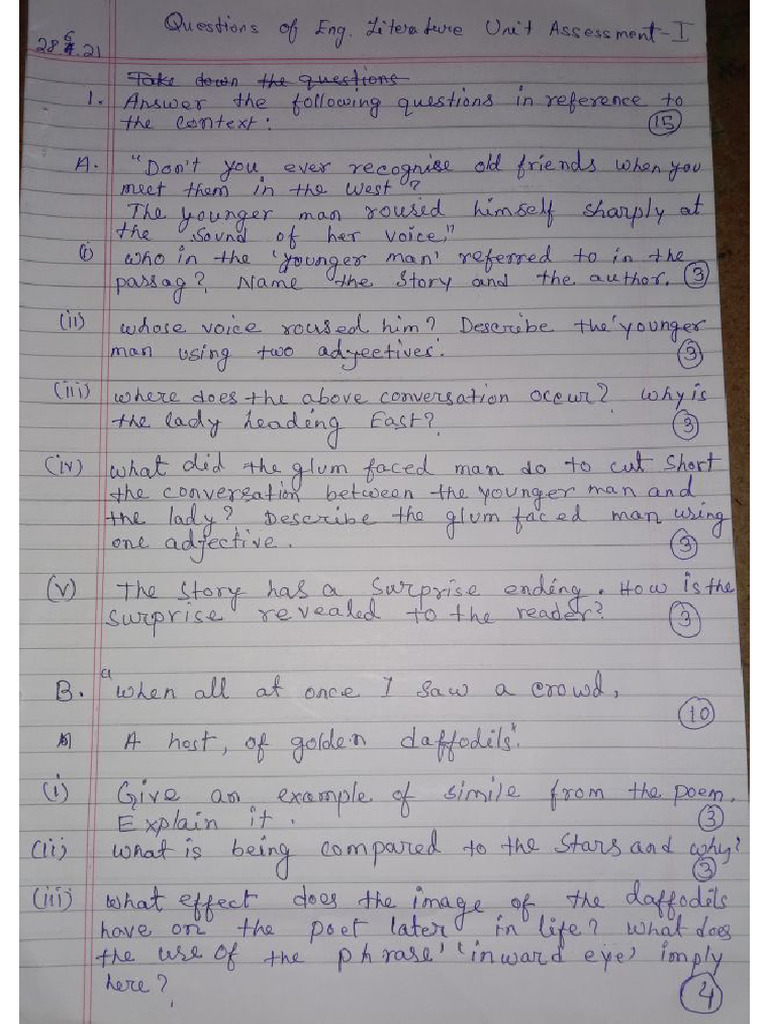 Questions of Eng. Literature Unit Assessment-I
28.6.21
Take down the questions
1. Answer the following questions in reference to
the context: 15
A. "Don't you ever recognise old friends when you
meet them in the west?
The younger man roused himself sharply at
the sound of her voice,"
(i) who in the 'younger man' referred to in the
passag? Name the story and the author. 3
(ii) whose voice roused him? Describe the 'younger
man using two adjectives'. 3
(iii) where does the above conversation occur? Why is
the lady heading East? 3
(iv) what did the glum faced man do to cut short
the conversation between the younger man and
the lady? Describe the glum faced man using
one adjective. 3
(v) The story has a surprise ending. How is the
surprise revealed to the reader? 3
B. "When all at once I saw a crowd,
10
A host, of golden daffodils".
(i) Give an example of simile from the poem.
Explain it. 3
(ii) what is being compared to the stars and why?
3
(iii) what effect does the image of the daffodils
have on the poet later in life? What does
the use of the phrase 'inward eye' imply
here? 4